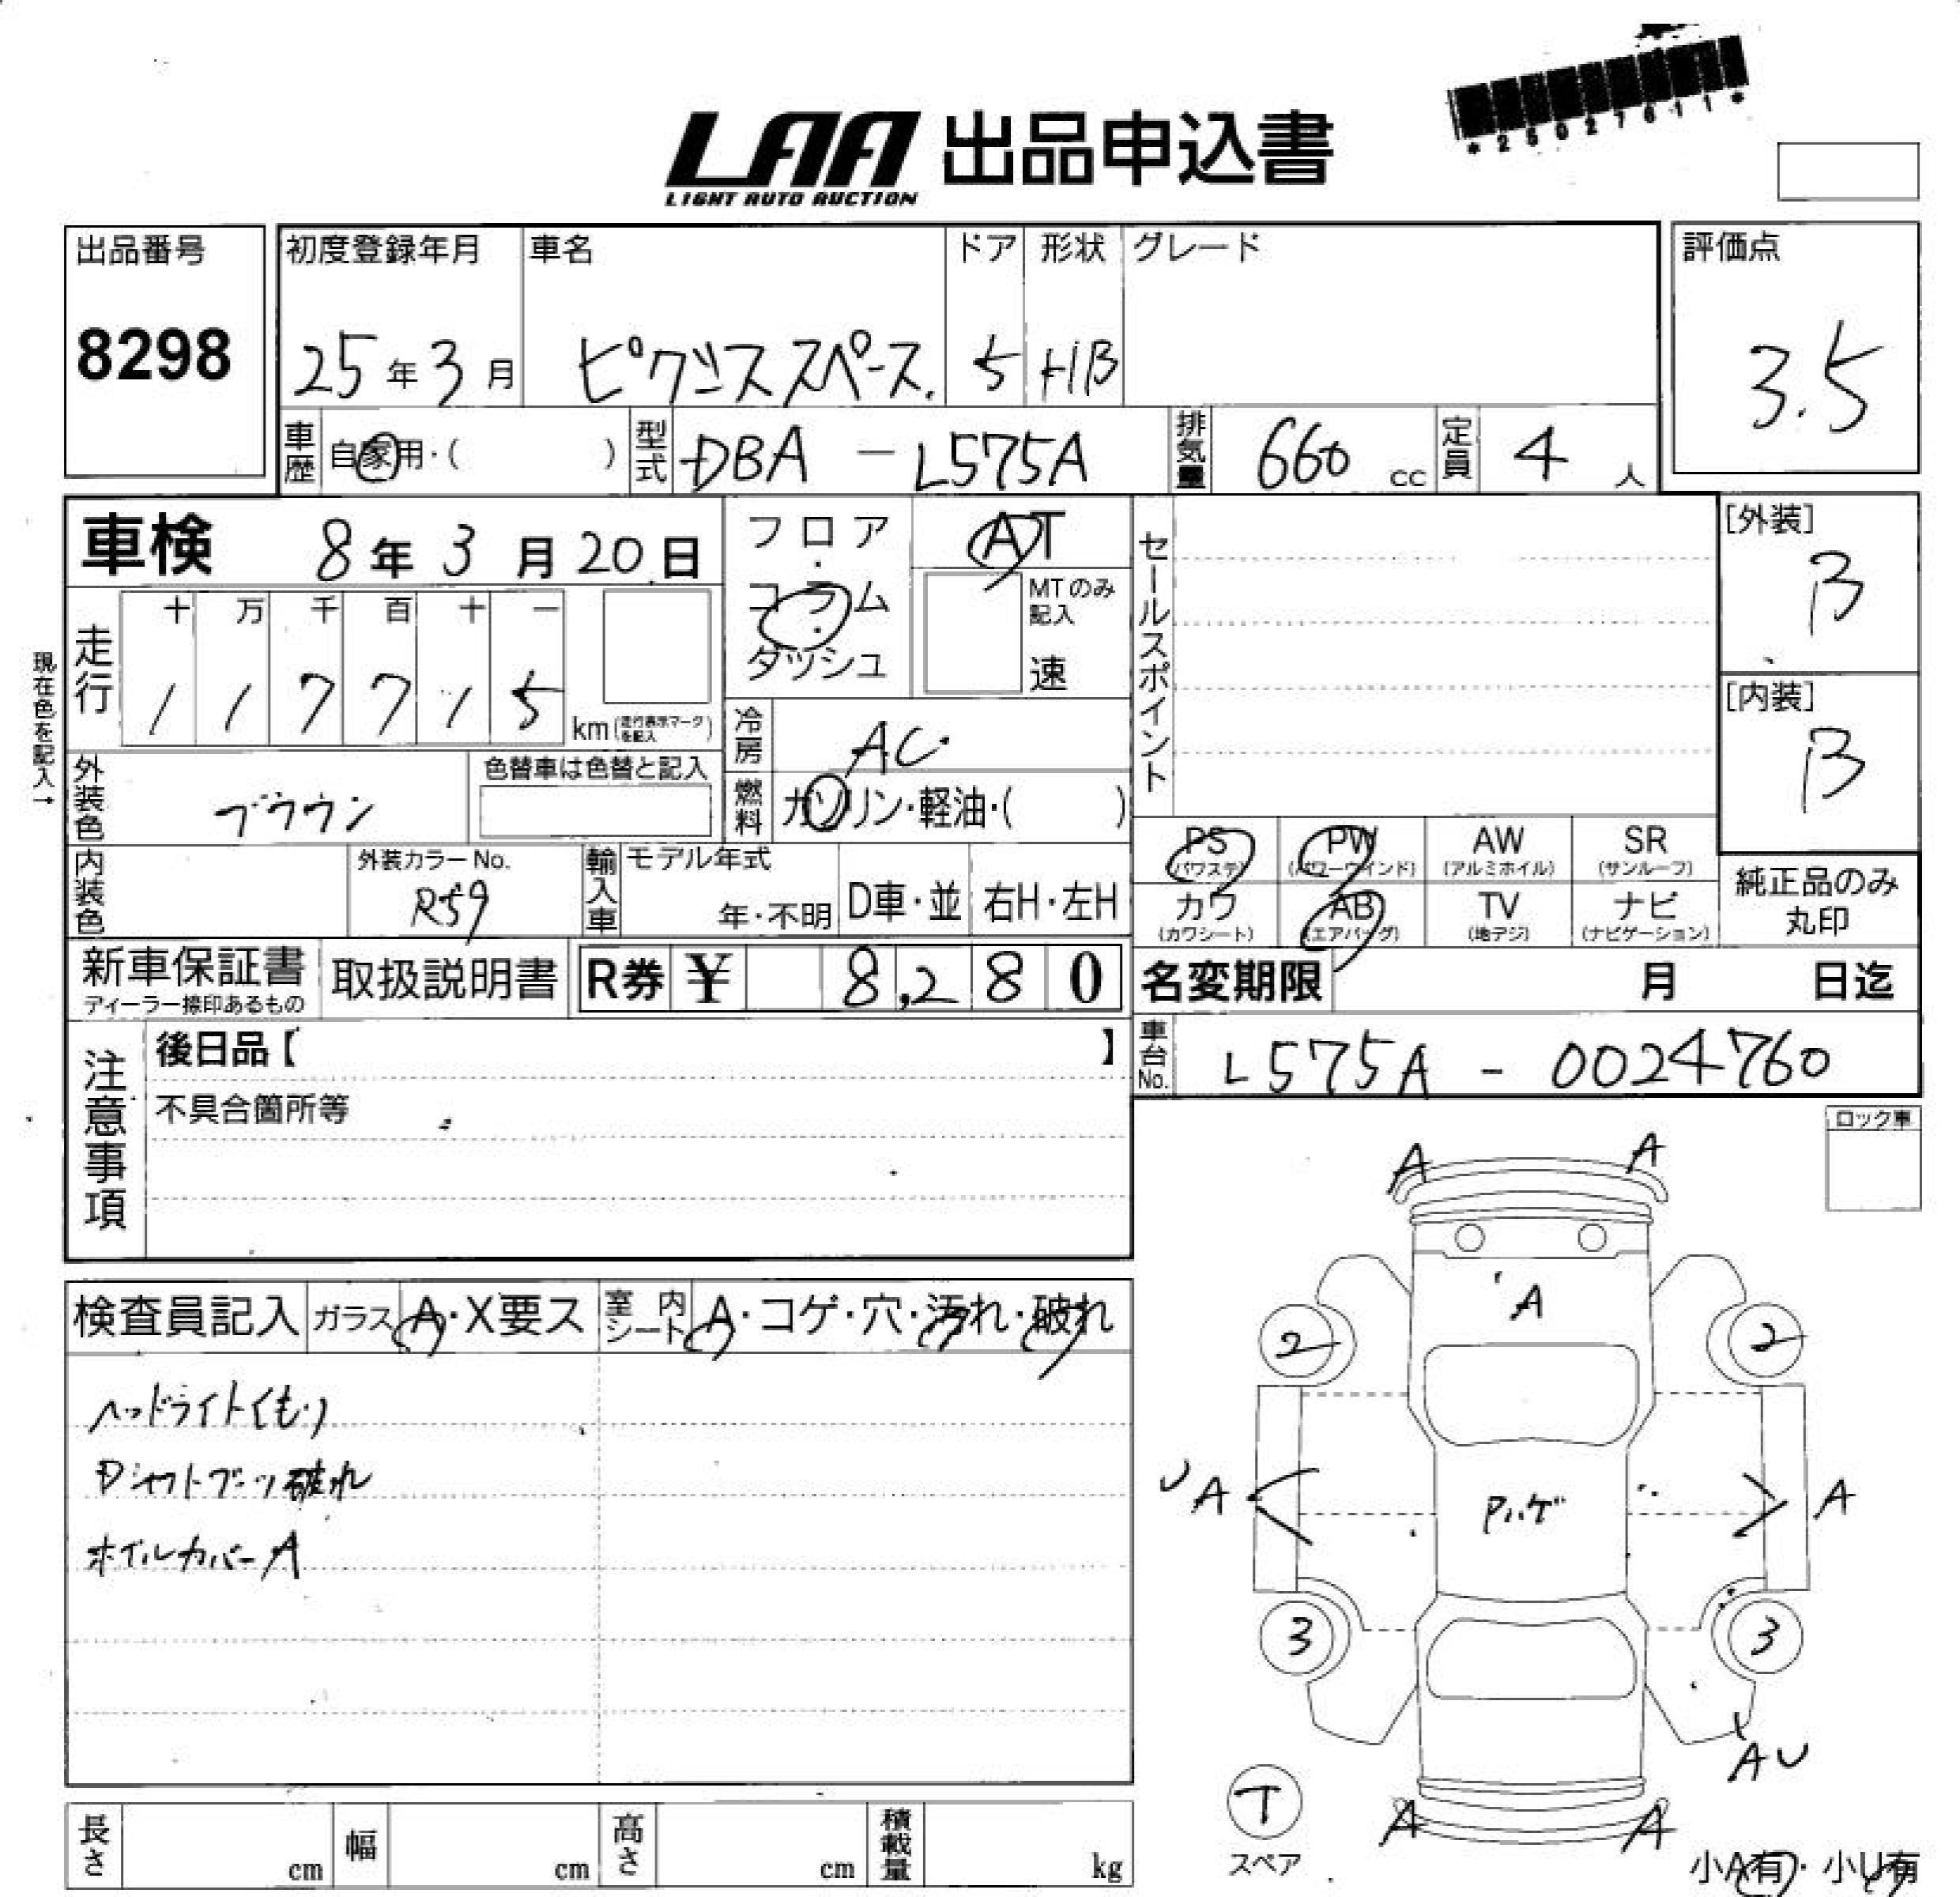 LAA 出品申込書
LIGHT AUTO AUCTION
*25027611*
出品番号
8298
初度登録年月
25年3月
車名
ピクシススペース.
ドア
5
形状
HB
グレード
評価点
3.5
車歴 自家用・( )
型式 DBA - L575A
排気量 660 cc
定員 4 人
車検 8年3月20日
フロア・コラム・ダッシュ
AT
MTのみ記入
速
セールスポイント
[外装]
B
[内装]
B
現在色を記入→
走行
十 万 千 百 十 一
1 1 7 7 1 5
km(走行表示マークを記入)
冷房 AC
燃料 ガソリン・軽油・( )
外装色 ブラウン
色替車は色替と記入
PS (パワステ)
PW (パワーウインド)
AW (アルミホイル)
SR (サンルーフ)
カワ (カワシート)
AB (エアバッグ)
TV (地デジ)
ナビ (ナビゲーション)
純正品のみ丸印
内装色
外装カラーNo.
R59
輸入車
モデル年式
年・不明
D車・並
右H・左H
新車保証書
ディーラー捺印あるもの
取扱説明書
R券 ¥ 8,280
名変期限 月 日迄
車台No. L575A - 0024760
注意事項
後日品【 】
不具合箇所等
ロック車
検査員記入
ガラス A・X要ス
室内シート A・コゲ・穴・汚れ・破れ
ヘッドライトくもり
Dシャフトブーツ破れ
ホイルカバーA
A A
A
2 2
UA A
Pハゲ
3 3
AU
T
スペア
A A
小A有・小U有
長さ cm
幅 cm
高さ cm
積載量 kg